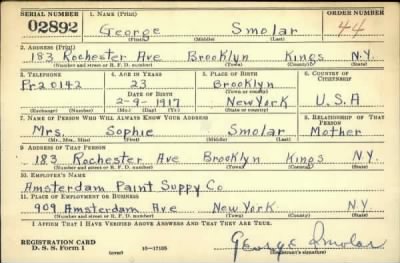 SERIAL NUMBER 1. NAME (Print) ORDER NUMBER
02892 George Smolar 44
(First) (Middle) (Last)
2. ADDRESS (Print)
183 Rochester Ave Brooklyn Kings N.Y.
(Number and street or R. F. D. number) (Town) (County) (State)
3. TELEPHONE 4. AGE IN YEARS 5. PLACE OF BIRTH 6. COUNTRY OF CITIZENSHIP
Pr20142 23 Brooklyn
DATE OF BIRTH (Town or county)
2-9-1917 New York U.S.A
(Exchange) (Number) (Mo.) (Day) (Yr.) (State or country)
7. NAME OF PERSON WHO WILL ALWAYS KNOW YOUR ADDRESS 8. RELATIONSHIP OF THAT PERSON
Mrs. Sophie Smolar Mother
(Mr., Mrs., Miss) (First) (Middle) (Last)
9. ADDRESS OF THAT PERSON
183 Rochester Ave Brooklyn Kings NY.
(Number and street or R. F. D. number) (Town) (County) (State)
10. EMPLOYER'S NAME
Amsterdam Paint Suppy Co
11. PLACE OF EMPLOYMENT OR BUSINESS
909 Amsterdam Ave New York NY
(Number and street or R. F. D. number) (Town) (County) (State)
I AFFIRM THAT I HAVE VERIFIED ABOVE ANSWERS AND THAT THEY ARE TRUE.
REGISTRATION CARD
D. S. S. Form 1 (over) 16-17105 George Smolar
(Registrant's signature)